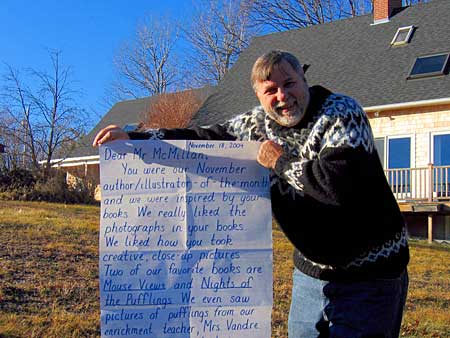 November 18, 2004
Dear Mr McMillan,
You were our November
author/illustrator of the month
and we were inspired by your
books. We really liked the
photographs in your books.
We liked how you took
creative, close-up pictures
Two of our favorite books are
Mouse Views and Nights of
the Pufflings We even saw
pictures of pufflings from our
enrichment teacher, Mrs Vandre